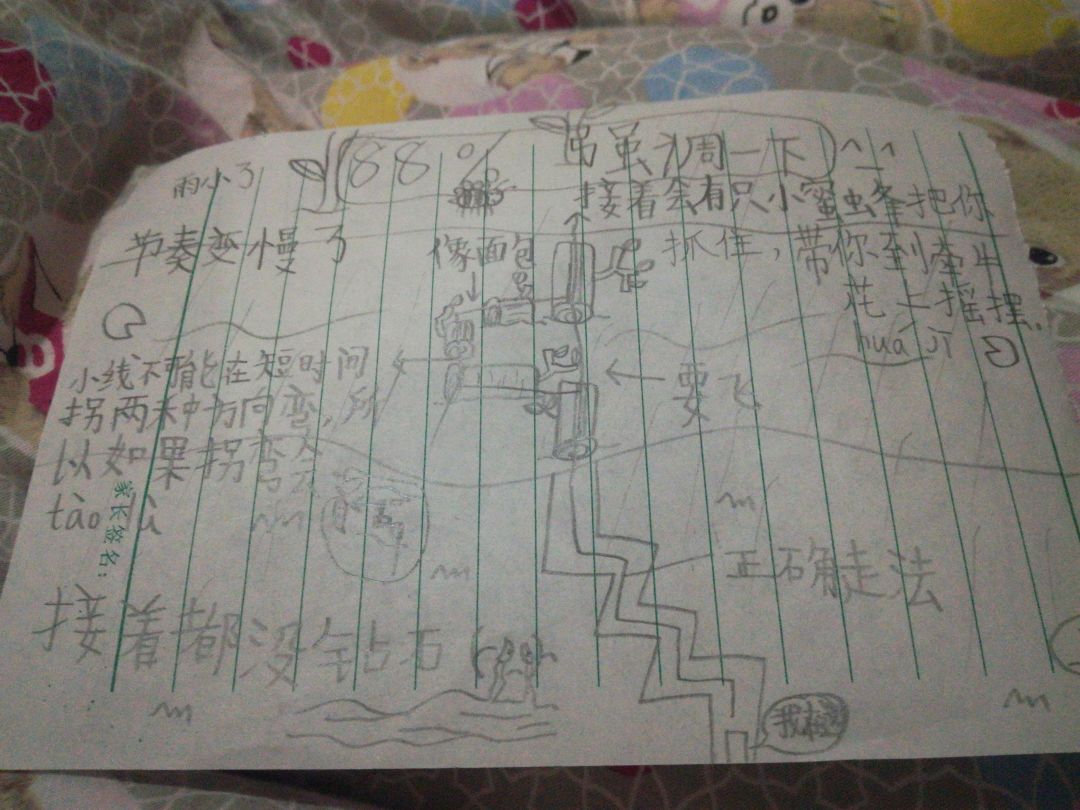 88%
吊虽犭周一下 ^_^
雨小了
接着会有只小蜜虫夆把你
抓住，带你到牵牛
花上摇摆.
huá jī
节奏变慢了
像面包
小线不可能在短时间
拐两种方向弯,所
以如果拐弯会
tào lù
要飞
家长签名：
正确走法
接着都没钻石